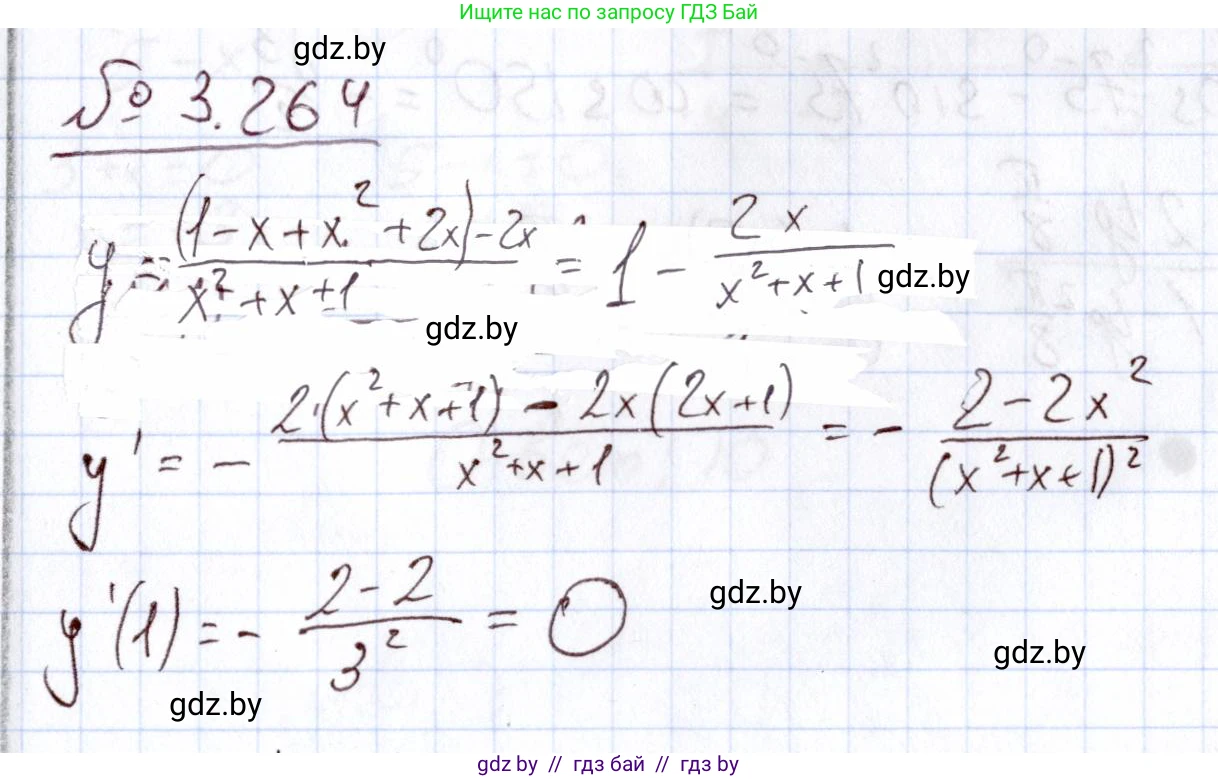 Ищите нас по запросу ГДЗ Бай
gdz.by
№ 3.264
y = ((1 - x + x² + 2x) - 2x) / (x² + x + 1) = 1 - 2x / (x² + x + 1) gdz.by
gdz.by
y' = - (2·(x² + x + 1) - 2x(2x + 1)) / (x² + x + 1) = - (2 - 2x²) / (x² + x + 1)²
y'(1) = - (2 - 2) / 3² = 0 gdz.by
gdz.by
gdz.by
gdz by // гдз бай // гдз by